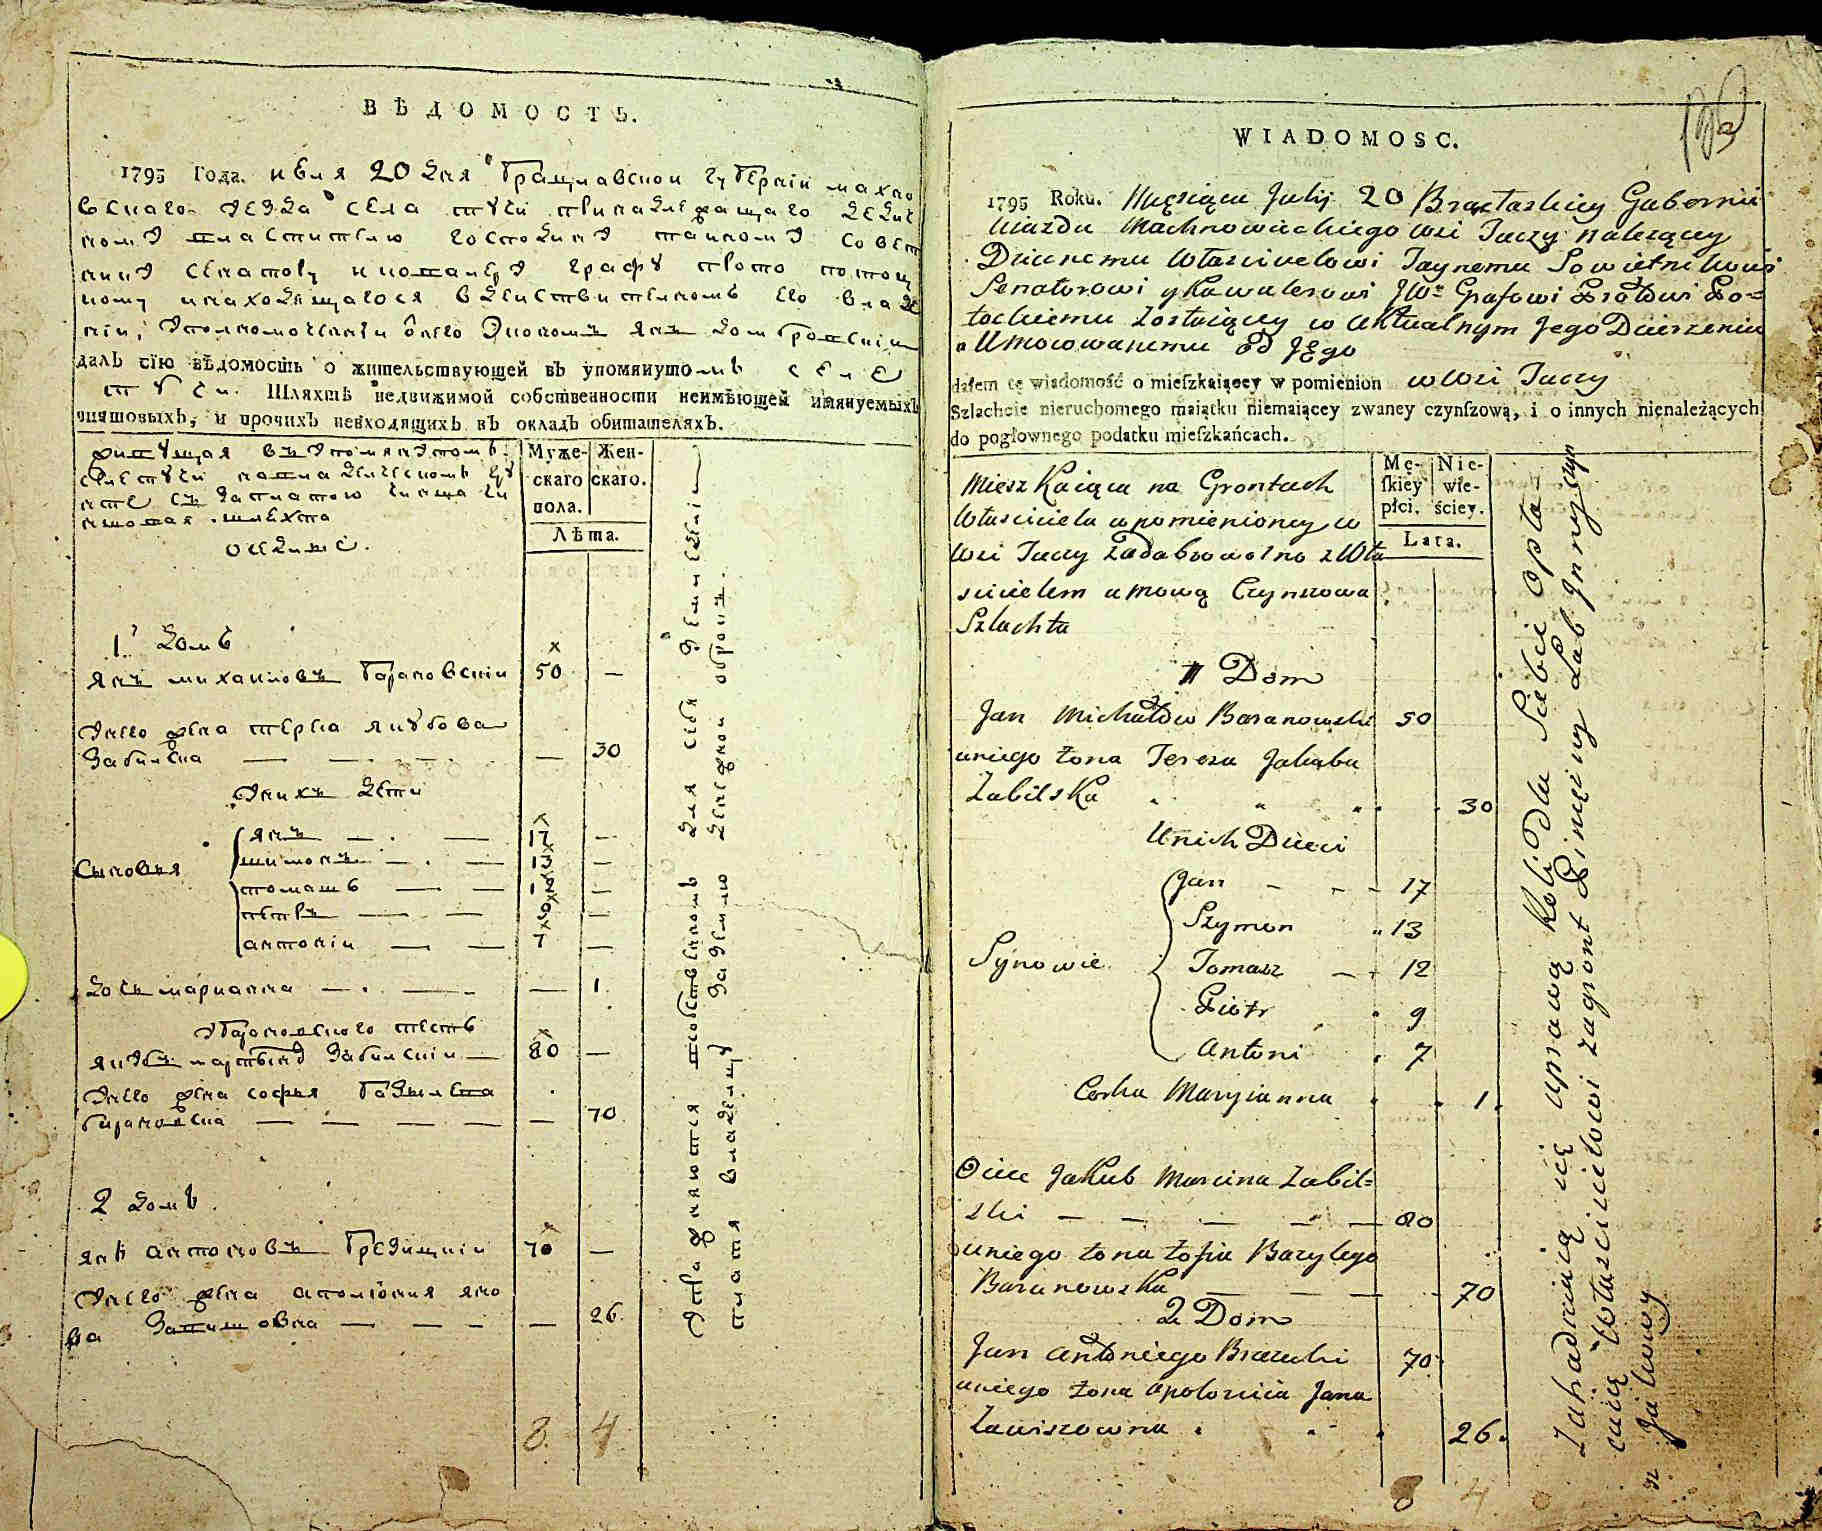 ВѢДОМОСТЬ.
1795 Года. июля 20 дня Брацлавской губерніи махно
вскаго уезда села тучи принадлежащаго дедич
ному властителю господину тайному совет
нику сенатору и кавалеру графу
ному находящагося в действителномъ его владе
ніи, уполномоченій отъ него економъ янъ домбровскій
далъ сїю вѣдомость о жительствующей въ упомянутомъ селе
тучи. Шляхтѣ недвижимой собственности неимѣющей имянуемыхъ
чиншовыхъ, и прочихъ невходящихъ въ окладъ обитателяхъ.
живущая въ упомянутомъ
селе тучи на владелческомъ гру
нте съ заплатою чинша чи
ншовая шляхта
оседлые.
Муже-
скаго
пола.
Жен-
скаго.
Лѣта.
1. домъ
янъ михайловъ барановскій 50 —
унего жена тереса якубова
забилска — — — 30
унихъ дети
Сыновья
янъ — — 17 —
шимонъ — — 13 —
томашъ — — 12 —
петръ — — 9 —
антоній — — 7 —
дочь марианна — — — 1
убарановского тесть
якубъ мартына забилскій — 80 —
унего жена софья базылева
барановска — — — — — 70
2 домъ
янъ антоновъ 70 —
унего жена аполония яно
ва завишовна — — — — 26
8 4
упражняются собственномъ для себя земледелій
платя владелцу за землю денежной оброкъ.
WIADOMOSC.
1795 Roku. Miesiąca Julij 20 Bracławskiey Gubernii
Uiazdu Machnowieckiego wsi Tuczy należącey
Dziecznemu Włascicielowi Taynemu Sowietnikowi
Senatorowi y Kawalerowi JWo Grafowi Prołowi Po=
tockiemu zostaiącey w aktualnym Jego Dzierzeniu
Umocowanemu od Jego
dałem tę wiadomość o mieszkaiącey w pomienion w Wsi Tuczy
Szlachcie nieruchomego maiątku niemaiącey zwaney czynszową, i o innych nienależących
do pogłownego podatku mieszkańcach.
Mieszkaiąca na Grontach
Własciciela wpomienioney w
Wsi Tuczy zadobrowolno z Wła
scicielem umową Czynszowa
Szlachta
Mę-
skiey
płci.
Nie-
wie-
ściey.
Lata.
1 Dom
Jan Michałow Baranowski 50
uniego żona Teresa Jakuba
Zabilska 30
Unich Dzieci
Synowie
Jan — — — 17
Szymon 13
Tomasz — 12
Piotr 9
Antoni 7
Corka Maryianna 1.
Ociec Jakub Marcina Zabil=
ski — — — — — 80
uniego żona Zofia Bazylego
Baranowska — — — 70
2 Dom
Jan Antoniego 70
uniego żona Apolonia Jana
Zawiszowna 26.
8 4
Zatrudniaią się uprawą Roli Dla Siebie Opła-
caiąc Włascicielowi zagront Pinięzny Lub Jnny czyn